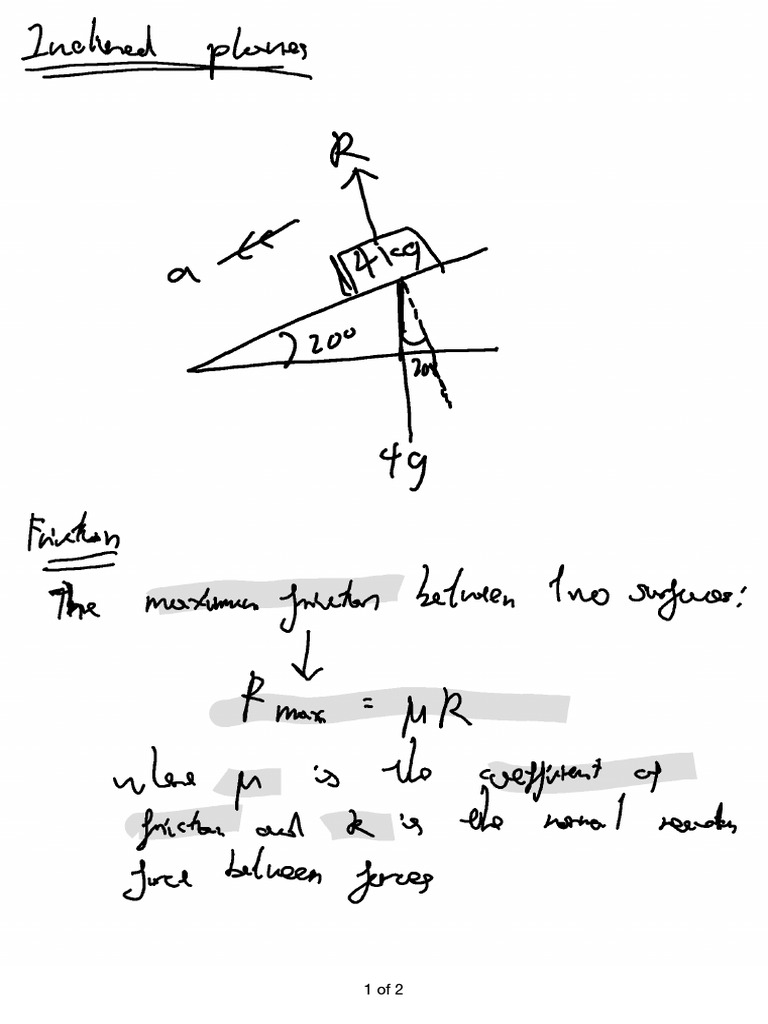 Inclined planes
R
a
4kg
20°
20°
4g
Friction
The maximum friction between two surfaces:
F max = μR
where μ is the coefficient of
friction and R is the normal reaction
force between forces
1 of 2